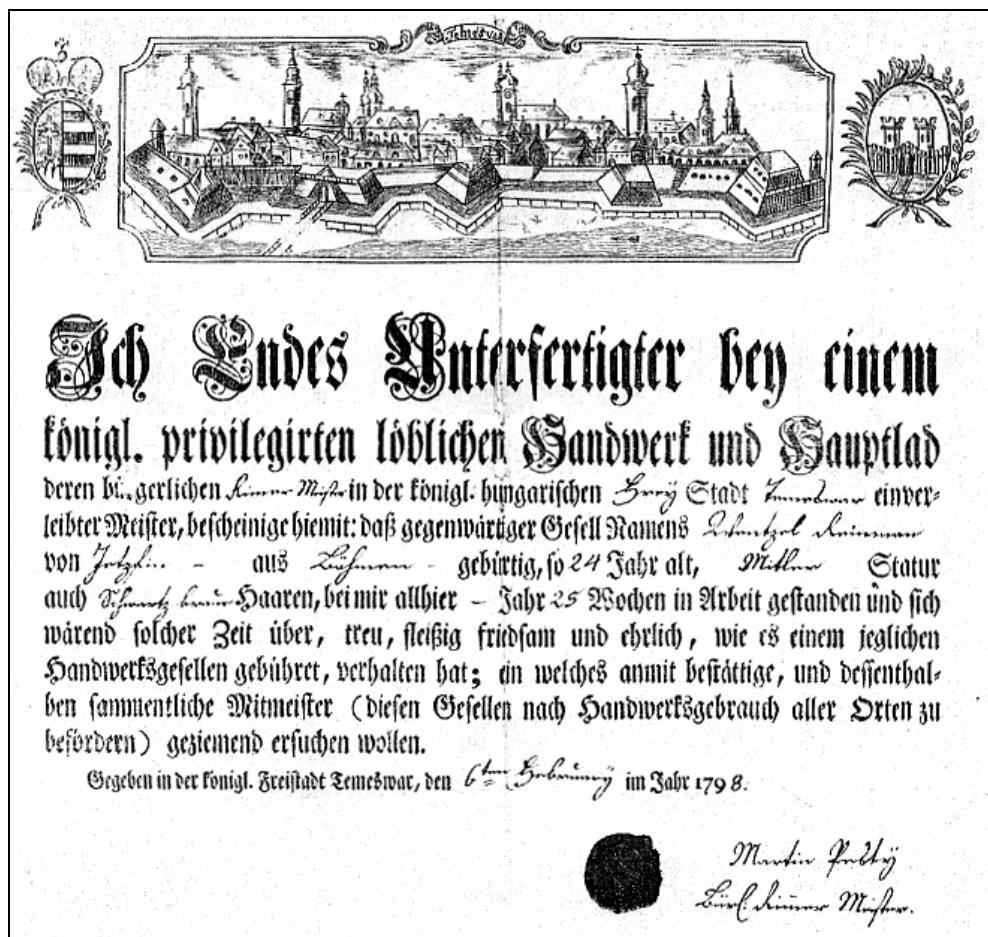 Temesvar
Ich Endes Unterfertigter bey einem
königl. privilegirten löblichen Handwerk und Hauptlad
deren bürgerlichen Riemer Mister in der königl. hungarischen Frey Stadt Temeswar einver-
leibter Meister, bescheinige hiemit: daß gegenwärtiger Gesell Namens Wentzel
von - aus Böhmen - gebürtig, so 24 Jahr alt, Mitler Statur
auch Schwartz braun Haaren, bei mir allhier - Jahr 25 Wochen in Arbeit gestanden und sich
wärend solcher Zeit über, treu, fleißig friedsam und ehrlich, wie es einem jeglichen
Handwerksgesellen gebühret, verhalten hat; ein welches anmit bestättige, und dessenthal-
ben sammentliche Mitmeister (diesen Gesellen nach Handwerksgebrauch aller Orten zu
befördern) geziemend ersuchen wollen.
Gegeben in der königl. Freistadt Temeswar, den 6ten Februarÿ im Jahr 1798.
Martin
Bürl. Riemer Meister.